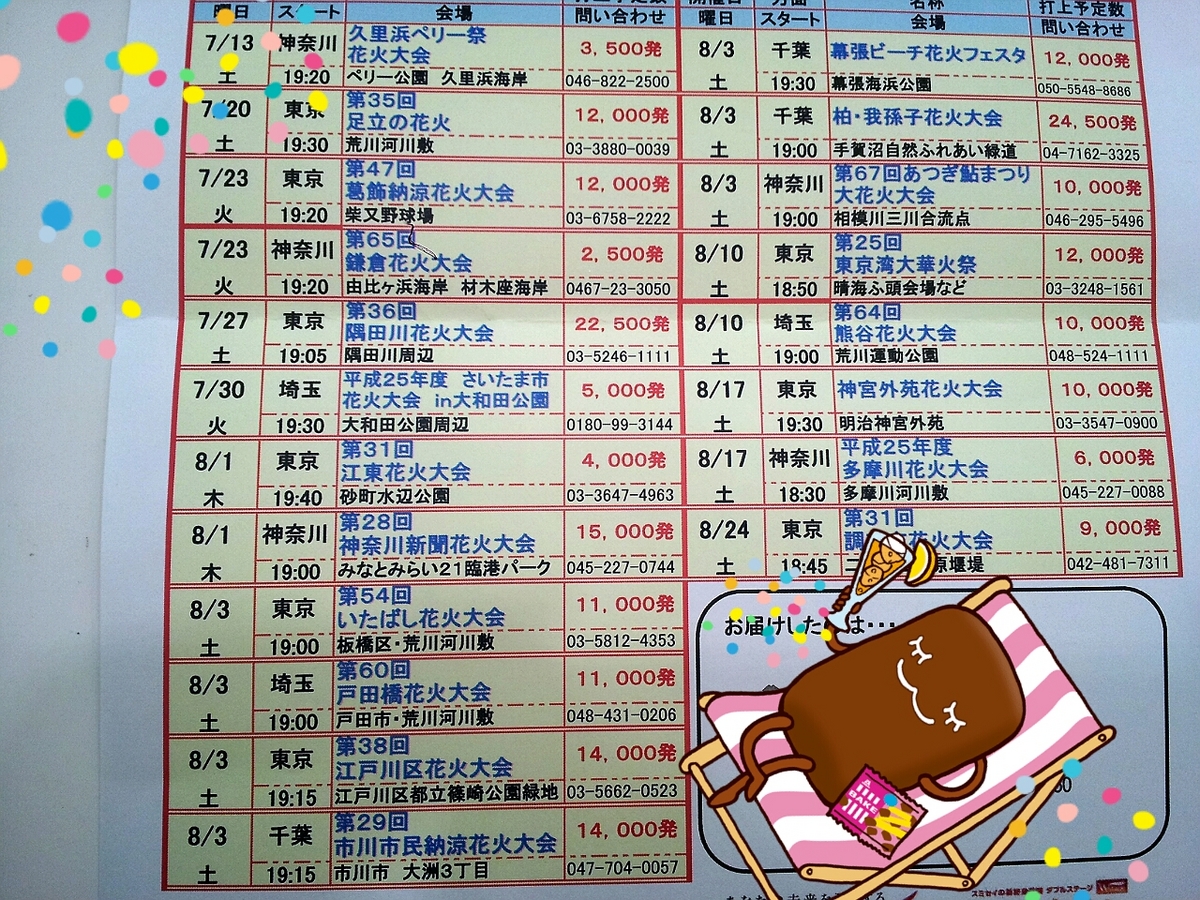 曜日 スタート 会場 問い合わせ
7/13 神奈川 久里浜ペリー祭
花火大会 3,500発
土 19:20 ペリー公園 久里浜海岸 046-822-2500
7/20 東京 第35回
足立の花火 12,000発
土 19:30 荒川河川敷 03-3880-0039
7/23 東京 第47回
葛飾納涼花火大会 12,000発
火 19:20 柴又野球場 03-6758-2222
7/23 神奈川 第65回
鎌倉花火大会 2,500発
火 19:20 由比ヶ浜海岸 材木座海岸 0467-23-3050
7/27 東京 第36回
隅田川花火大会 22,500発
土 19:05 隅田川周辺 03-5246-1111
7/30 埼玉 平成25年度 さいたま市
花火大会 in大和田公園 5,000発
火 19:30 大和田公園周辺 0180-99-3144
8/1 東京 第31回
江東花火大会 4,000発
木 19:40 砂町水辺公園 03-3647-4963
8/1 神奈川 第28回
神奈川新聞花火大会 15,000発
木 19:00 みなとみらい21臨港パーク 045-227-0744
8/3 東京 第54回
いたばし花火大会 11,000発
土 19:00 板橋区・荒川河川敷 03-5812-4353
8/3 埼玉 第60回
戸田橋花火大会 11,000発
土 19:00 戸田市・荒川河川敷 048-431-0206
8/3 東京 第38回
江戸川区花火大会 14,000発
土 19:15 江戸川区都立篠崎公園緑地 03-5662-0523
8/3 千葉 第29回
市川市民納涼花火大会 14,000発
土 19:15 市川市 大洲3丁目 047-704-0057
名称 打上予定数
曜日 スタート 会場 問い合わせ
8/3 千葉 幕張ビーチ花火フェスタ 12,000発
土 19:30 幕張海浜公園 050-5548-8686
8/3 千葉 柏・我孫子花火大会 24,500発
土 19:00 手賀沼自然ふれあい緑道 04-7162-3325
8/3 神奈川 第67回あつぎ鮎まつり
大花火大会 10,000発
土 19:00 相模川三川合流点 046-295-5496
8/10 東京 第25回
東京湾大華火祭 12,000発
土 18:50 晴海ふ頭会場など 03-3248-1561
8/10 埼玉 第64回
熊谷花火大会 10,000発
土 19:00 荒川運動公園 048-524-1111
8/17 東京 神宮外苑花火大会 10,000発
土 19:30 明治神宮外苑 03-3547-0900
8/17 神奈川 平成25年度
多摩川花火大会 6,000発
土 18:30 多摩川河川敷 045-227-0088
8/24 東京 第31回
調 花火大会 9,000発
土 18:45 原堰堤 042-481-7311
お届けした は・・・
BAKE
スミセイの総合保障 ダブルステージ